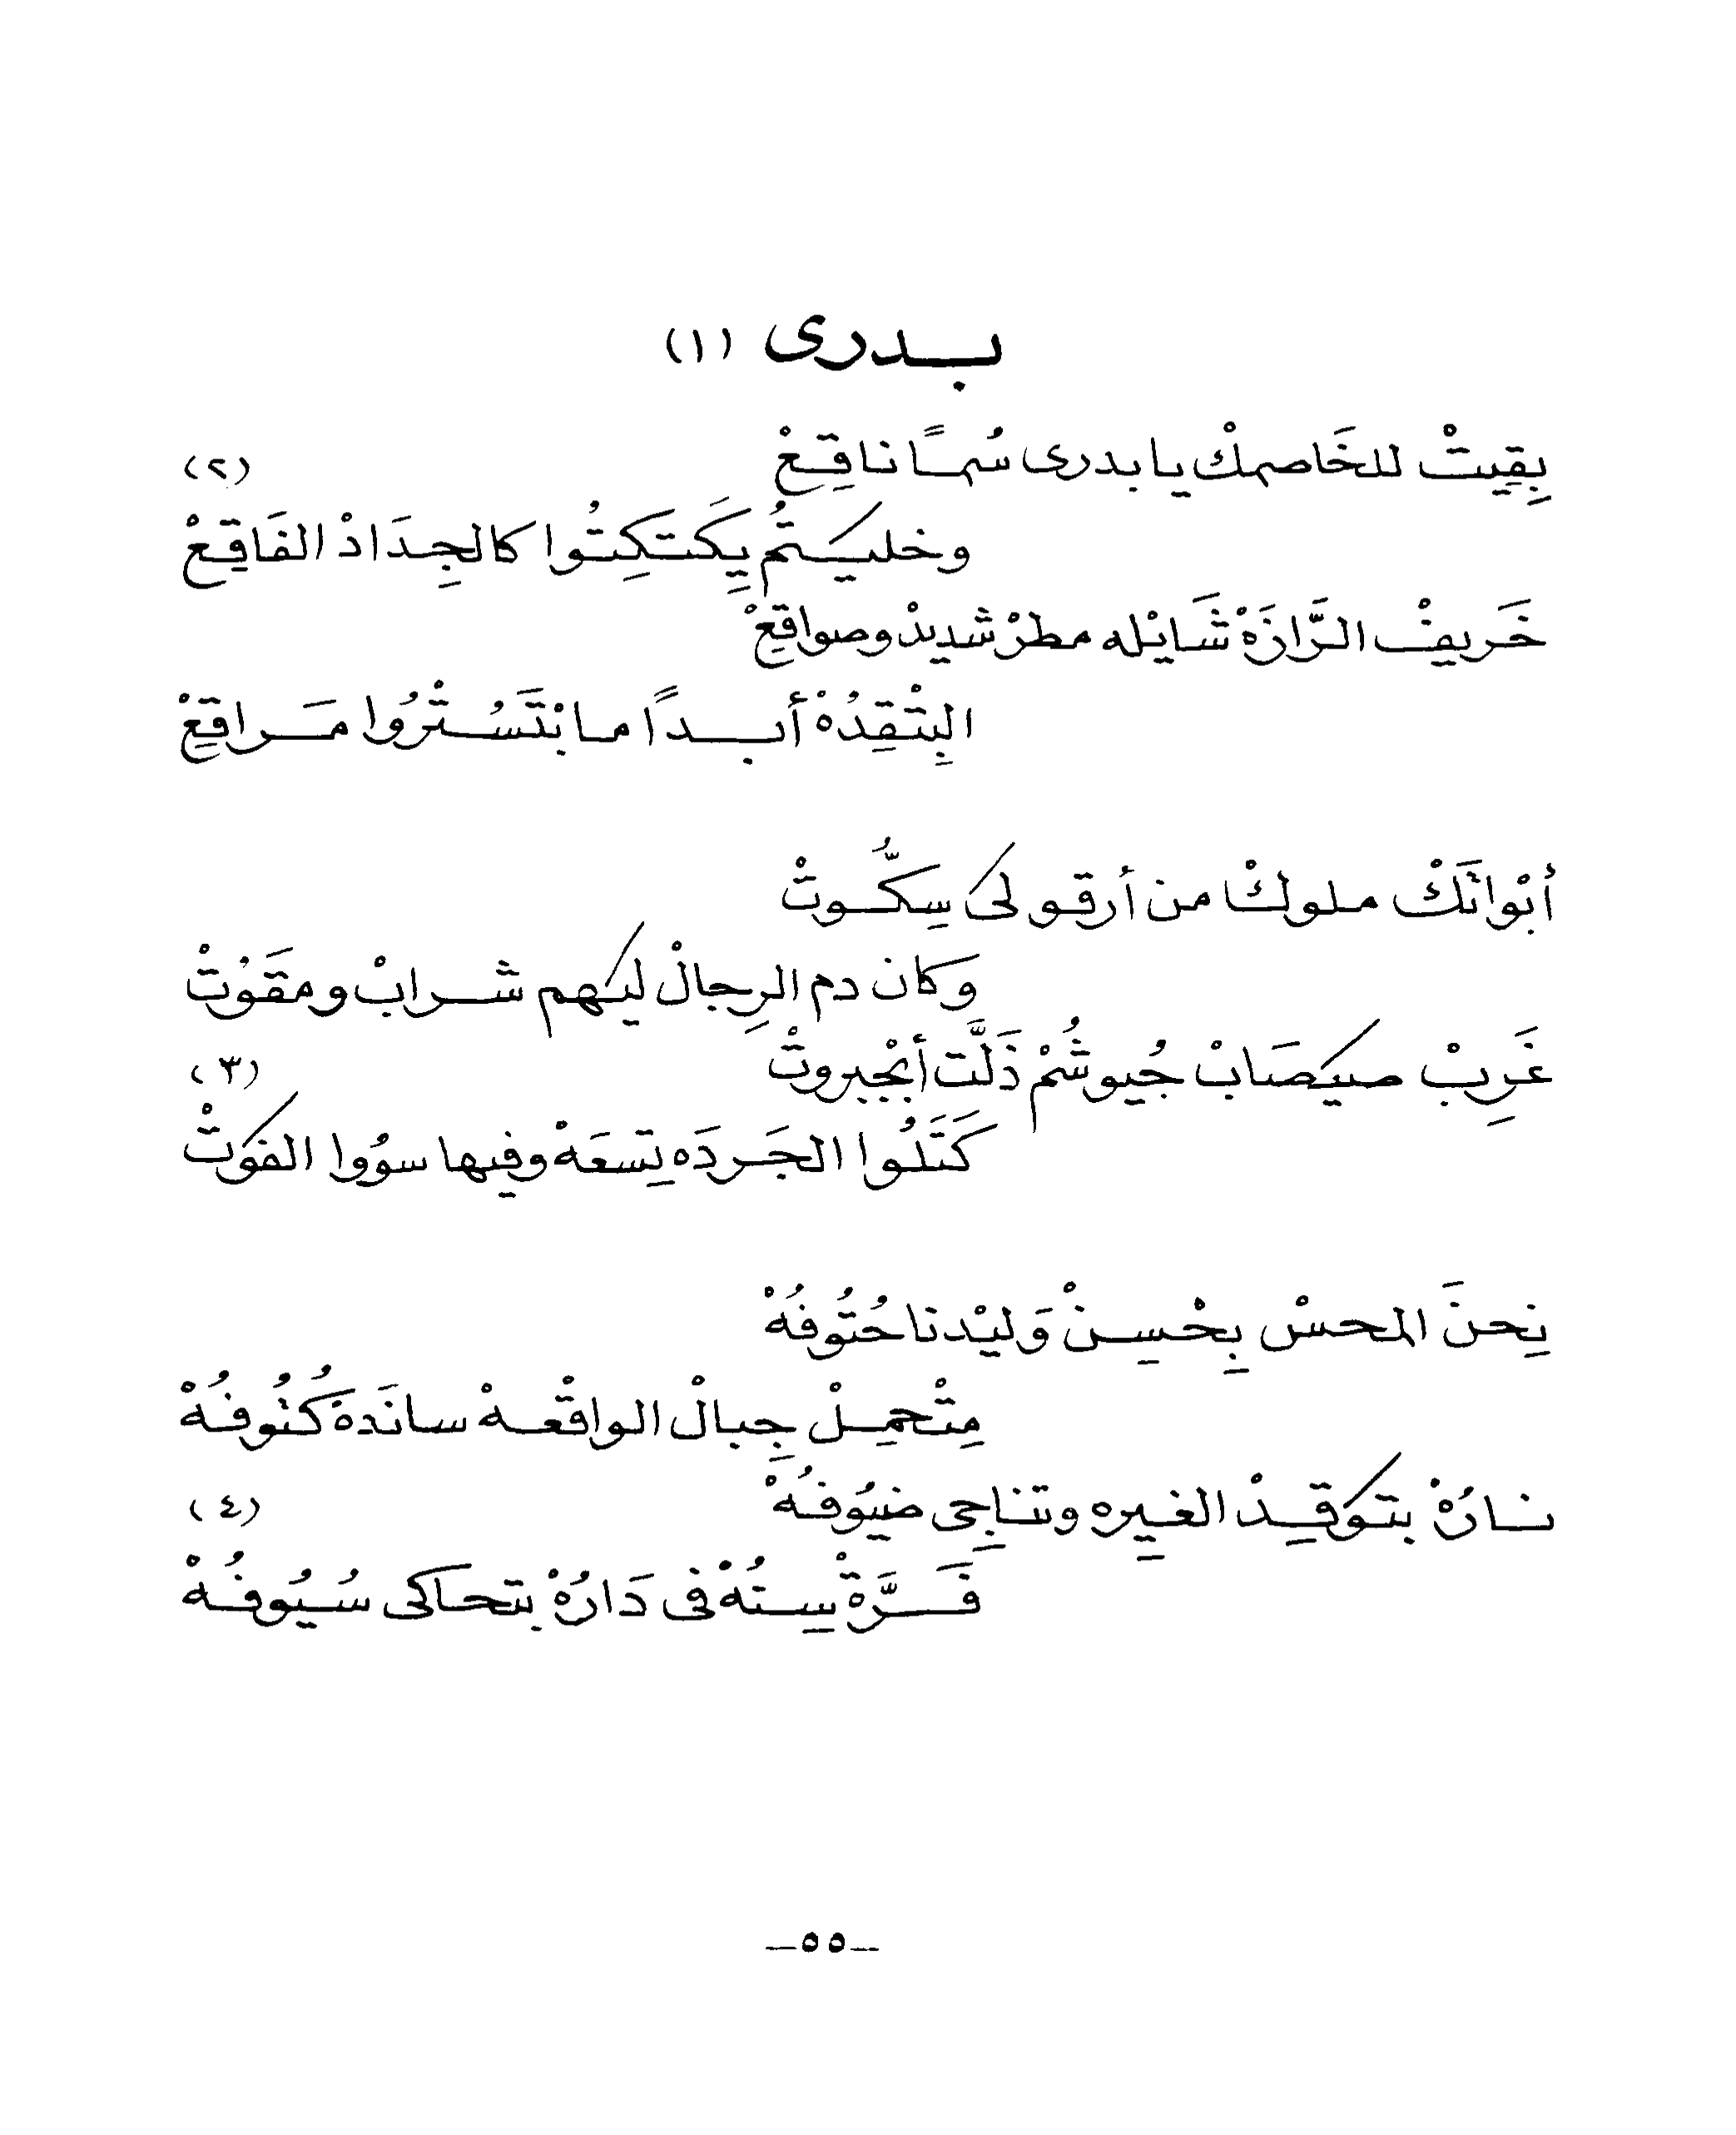 بدرى (١)
بِقِيتْ للخَاصمكْ يا بدرى سُمـًا ناقِعْ (٢)
وخليتُم يِكَتكِتُوا كالجِدَادْ الفَاقِعْ
خَريفْ الرَّازَهْ شَايْله مطرْ شديدْ وصواقِعْ
البِتْقِدُهْ أبدًا ما بْتَسُتْرُوا مَراقِعْ
أبْواتَكْ ملوكْ من أرقو لىَ سِكُّوتْ
وَكان دم الرِجالْ ليَهم شرابْ ومقَوُتْ
غَرِبْ صيصَابْ جُيوشُمْ ذَلَّت أبْجبروتْ (٣)
كَتَلُوا الجَردَه تِسعَهْ وفيها سوُوا الفوَتْ
نِحنَ المحسْ بِحْسِنْ وَليْدنا حُتُوفُهْ
مِتْحمِلْ جِبالْ الواقْعهْ سانَدهَ كُتُوفُهْ
نارُهْ بتوَقِدْ الغيِره وتناجِى ضيُوفُهْ (٤)
فَرَّةْ سِنُهْ فى دَارُهْ بتحاكى سُيُوفُهْ
ــ ٥٥ ــ